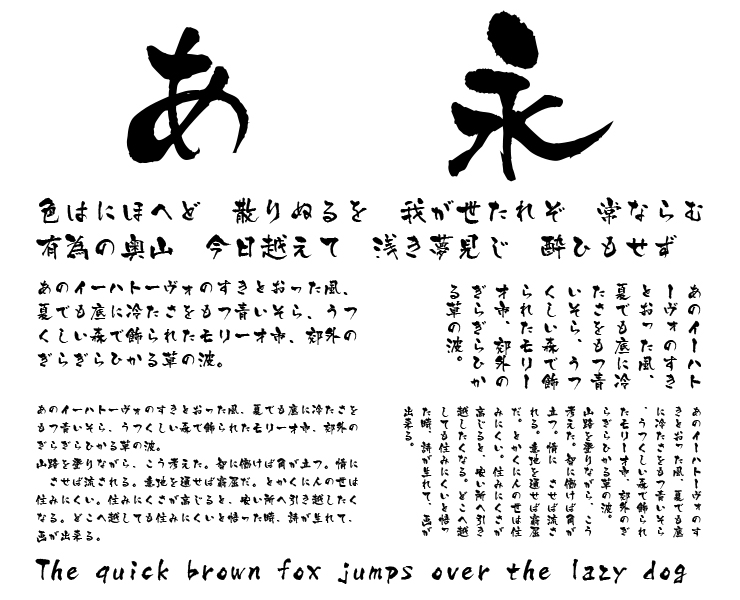 あ 永
色はにほへど 散りぬるを 我が世たれぞ 常ならむ
有為の奥山 今日越えて 浅き夢見じ 酔ひもせず
あのイーハトーヴォのすきとおった風、
夏でも底に冷たさをもつ青いそら、うつ
くしい森で飾られたモリーオ市、郊外の
ぎらぎらひかる草の波。
あのイーハト
ーヴォのすき
とおった風、
夏でも底に冷
たさをもつ青
いそら、うつ
くしい森で飾
られたモリー
オ市、郊外の
ぎらぎらひか
る草の波。
あのイーハトーヴォのすきとおった風、夏でも底に冷たさを
もつ青いそら、うつくしい森で飾られたモリーオ市、郊外の
ぎらぎらひかる草の波。
山路を登りながら、こう考えた。智に働けば角が立つ。情に
させば流される。意地を通せば窮屈だ。とかくに人の世は
住みにくい。住みにくさが高じると、安い所へ引き越したく
なる。どこへ越しても住みにくいと悟った時、詩が生れて、
画が出来る。
あのイーハトーヴォのす
きとおった風、夏でも底
に冷たさをもつ青いそら
、うつくしい森で飾られ
たモリーオ市、郊外のぎ
らぎらひかる草の波。
山路を登りながら、こう
考えた。智に働けば角が
立つ。情に させば流さ
れる。意地を通せば窮屈
だ。とかくに人の世は住
みにくい。住みにくさが
高じると、安い所へ引き
越したくなる。どこへ越
しても住みにくいと悟っ
た時、詩が生れて、画が
出来る。
The quick brown fox jumps over the lazy dog